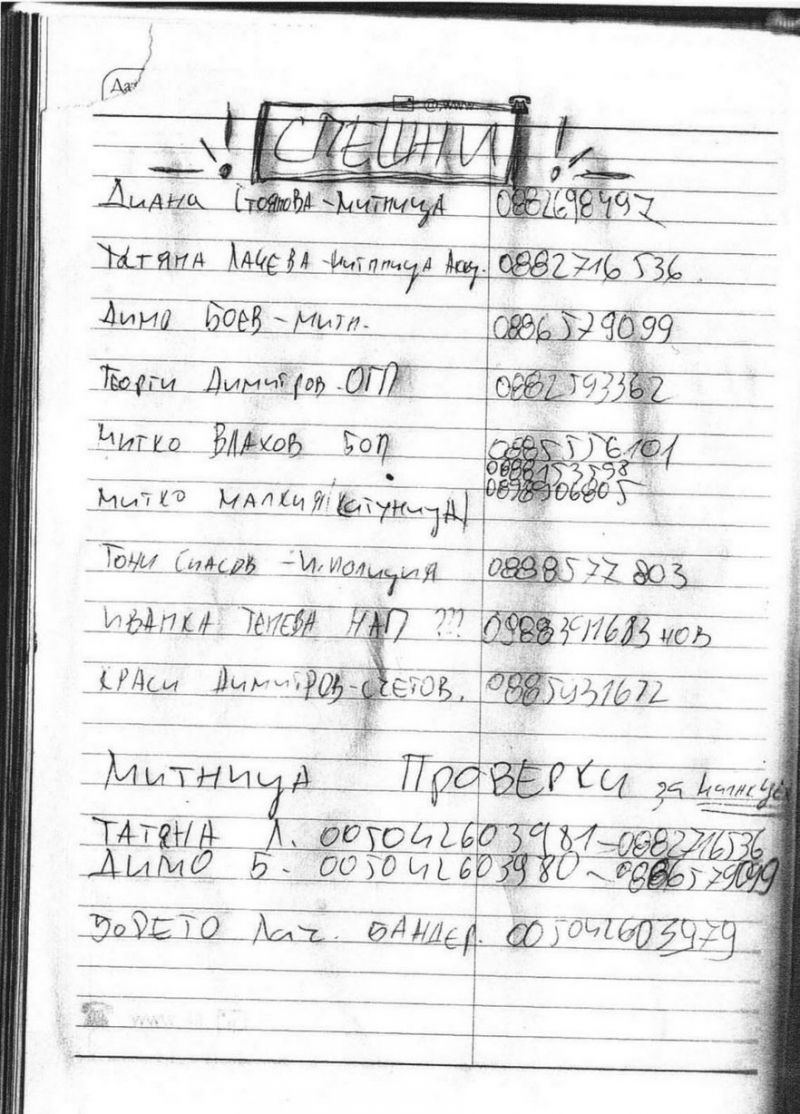 Да
@ www
! СПЕШНИ !
Диана Стоянова - митница 0882698497
Татяна Лачева - митница Акц. 0882716536
Димо Боев - митн. 0886579099
Георги Димитров. ОГП 0882593362
Митко Влахов БОП 0885556101
0888153598
0898906805
Митко Малкия (катуница)
Тони Спасов - И. полиция 0888577803
Иванка Тенева НАП ??? нов
Краси Димитров - счетов. 0885431672
Митница Проверки за
ТАТЯНА Л. 005042603981 - 0882716536
ДИМО Б. 005042603980 - 0886579099
БОРЕТО Лач. БАНДЕР. 005042603979